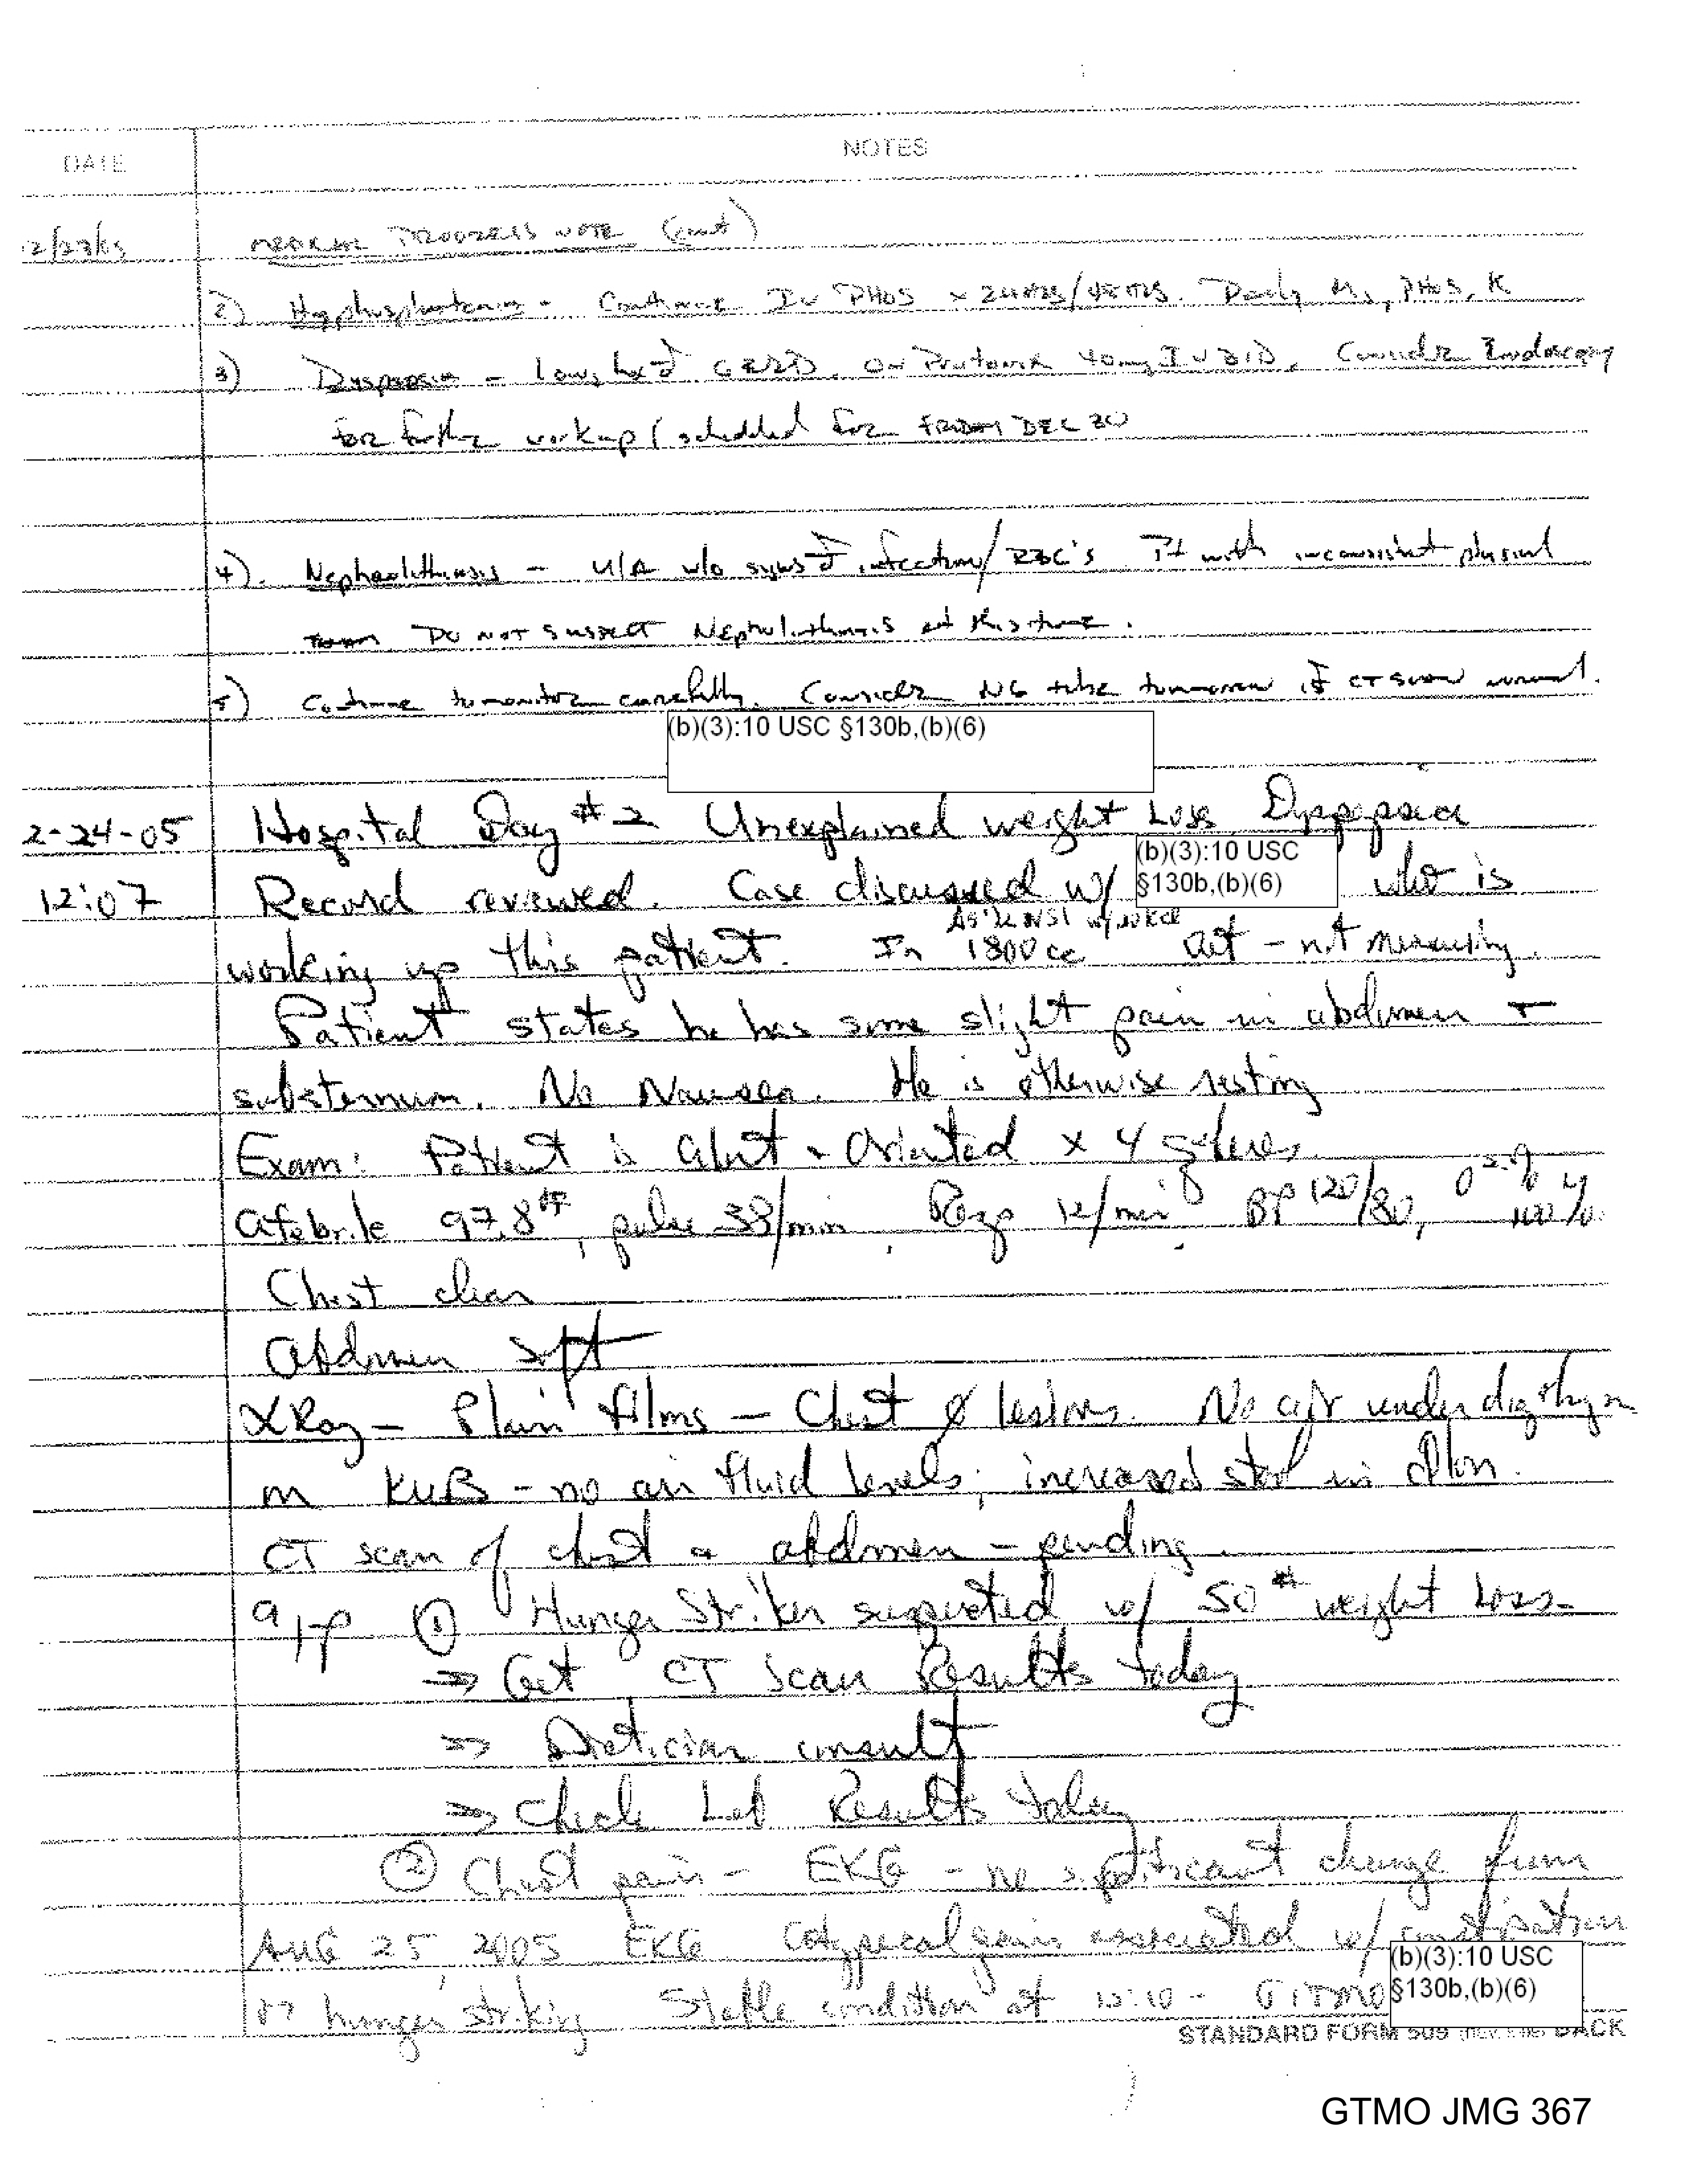 DATE NOTES
12/23/05 MEDICAL PROGRESS NOTE (cont)
2) Hypophosphatemia - Continue IV PHOS x 24 HRS/48 HRS. Daily Mg, PHOS, K
3) Dyspepsia - long hx of GERD. On Protonix 40mg IV BID. Consider Endoscopy
for further workup (scheduled for FRIDAY DEC 30
4). Nephrolithiasis - U/A w/o signs of infection/RBC's. Pt with inconsistent physical
DO NOT SUSPECT Nephrolithiasis at this time.
5) Continue to monitor carefully. Consider NG tube tomorrow if CT scan normal.
(b)(3):10 USC §130b,(b)(6)
2-24-05 Hospital Day #2 Unexplained weight Loss, Dyspepsia
12:07 Record reviewed. Case discussed w/ (b)(3):10 USC §130b,(b)(6) who is
working up this patient. In 1800cc out - not measuring.
Patient states he has some slight pain in abdomen +
substernum. No Nausea. He is otherwise resting
Exam: Patient is alert & Oriented x 4 spheres.
afebrile 97.8°F, pulse 38/min, Resp 12/min, BP 120/80, 100%
Chest clear
Abdomen soft
XRay - Plain films - Chest ø lesions. No air under diaphragm
KUB - no air fluid levels; increased stool in colon.
CT scan of chest & abdomen - pending.
a/p ① Hunger Striker suspected w/ 50# weight Loss -
⇒ Get CT Scan Results today
⇒ Dietician consult
⇒ Check Lab Results today
② Chest pain - EKG - no significant change from
AUG 25, 2005 EKG atypical pain associated w/ constipation
hunger striking Stable condition at 12:10 - GITMO (b)(3):10 USC §130b,(b)(6)
STANDARD FORM 509 BACK
GTMO JMG 367